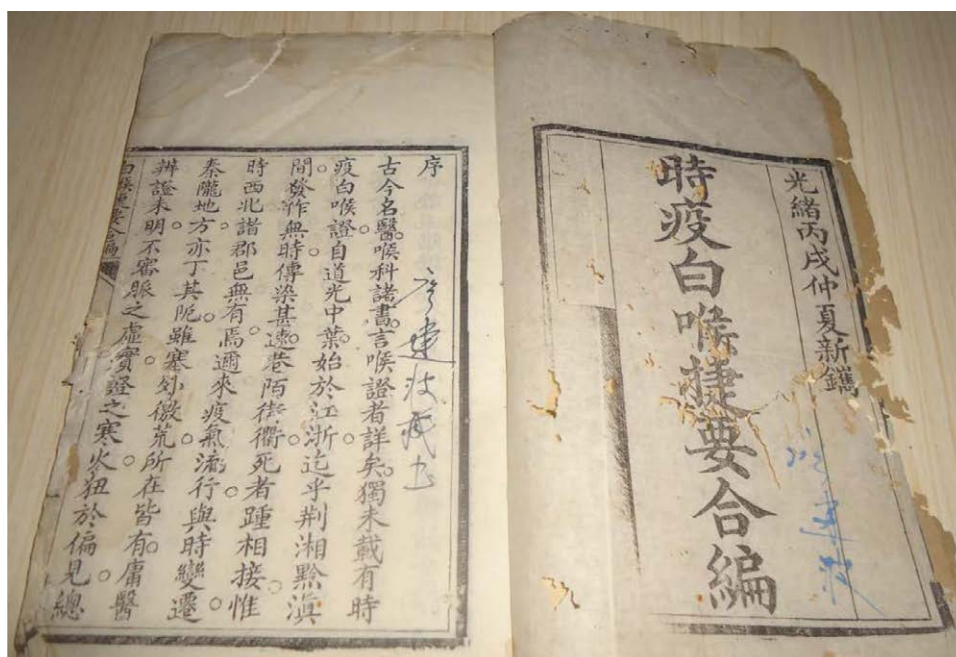 光緒丙戌仲夏新鐫
時疫白喉捷要合編
序
古今名醫喉科諸書。言喉證者詳矣。獨未載有時
疫白喉證。自道光中葉。始於江浙。迄乎荆湘黔滇
間。發作無時。傳染甚速。巷陌街衢。死者踵相接。惟
時西北諸郡邑無有焉。邇來疫氣流行。與時變遷。
秦隴地方。亦丁其阨。雖塞外徼荒。所在皆有。庸醫
辨證未明。不審脈之虛實。證之寒火。狃於偏見。總
白喉捷要合編